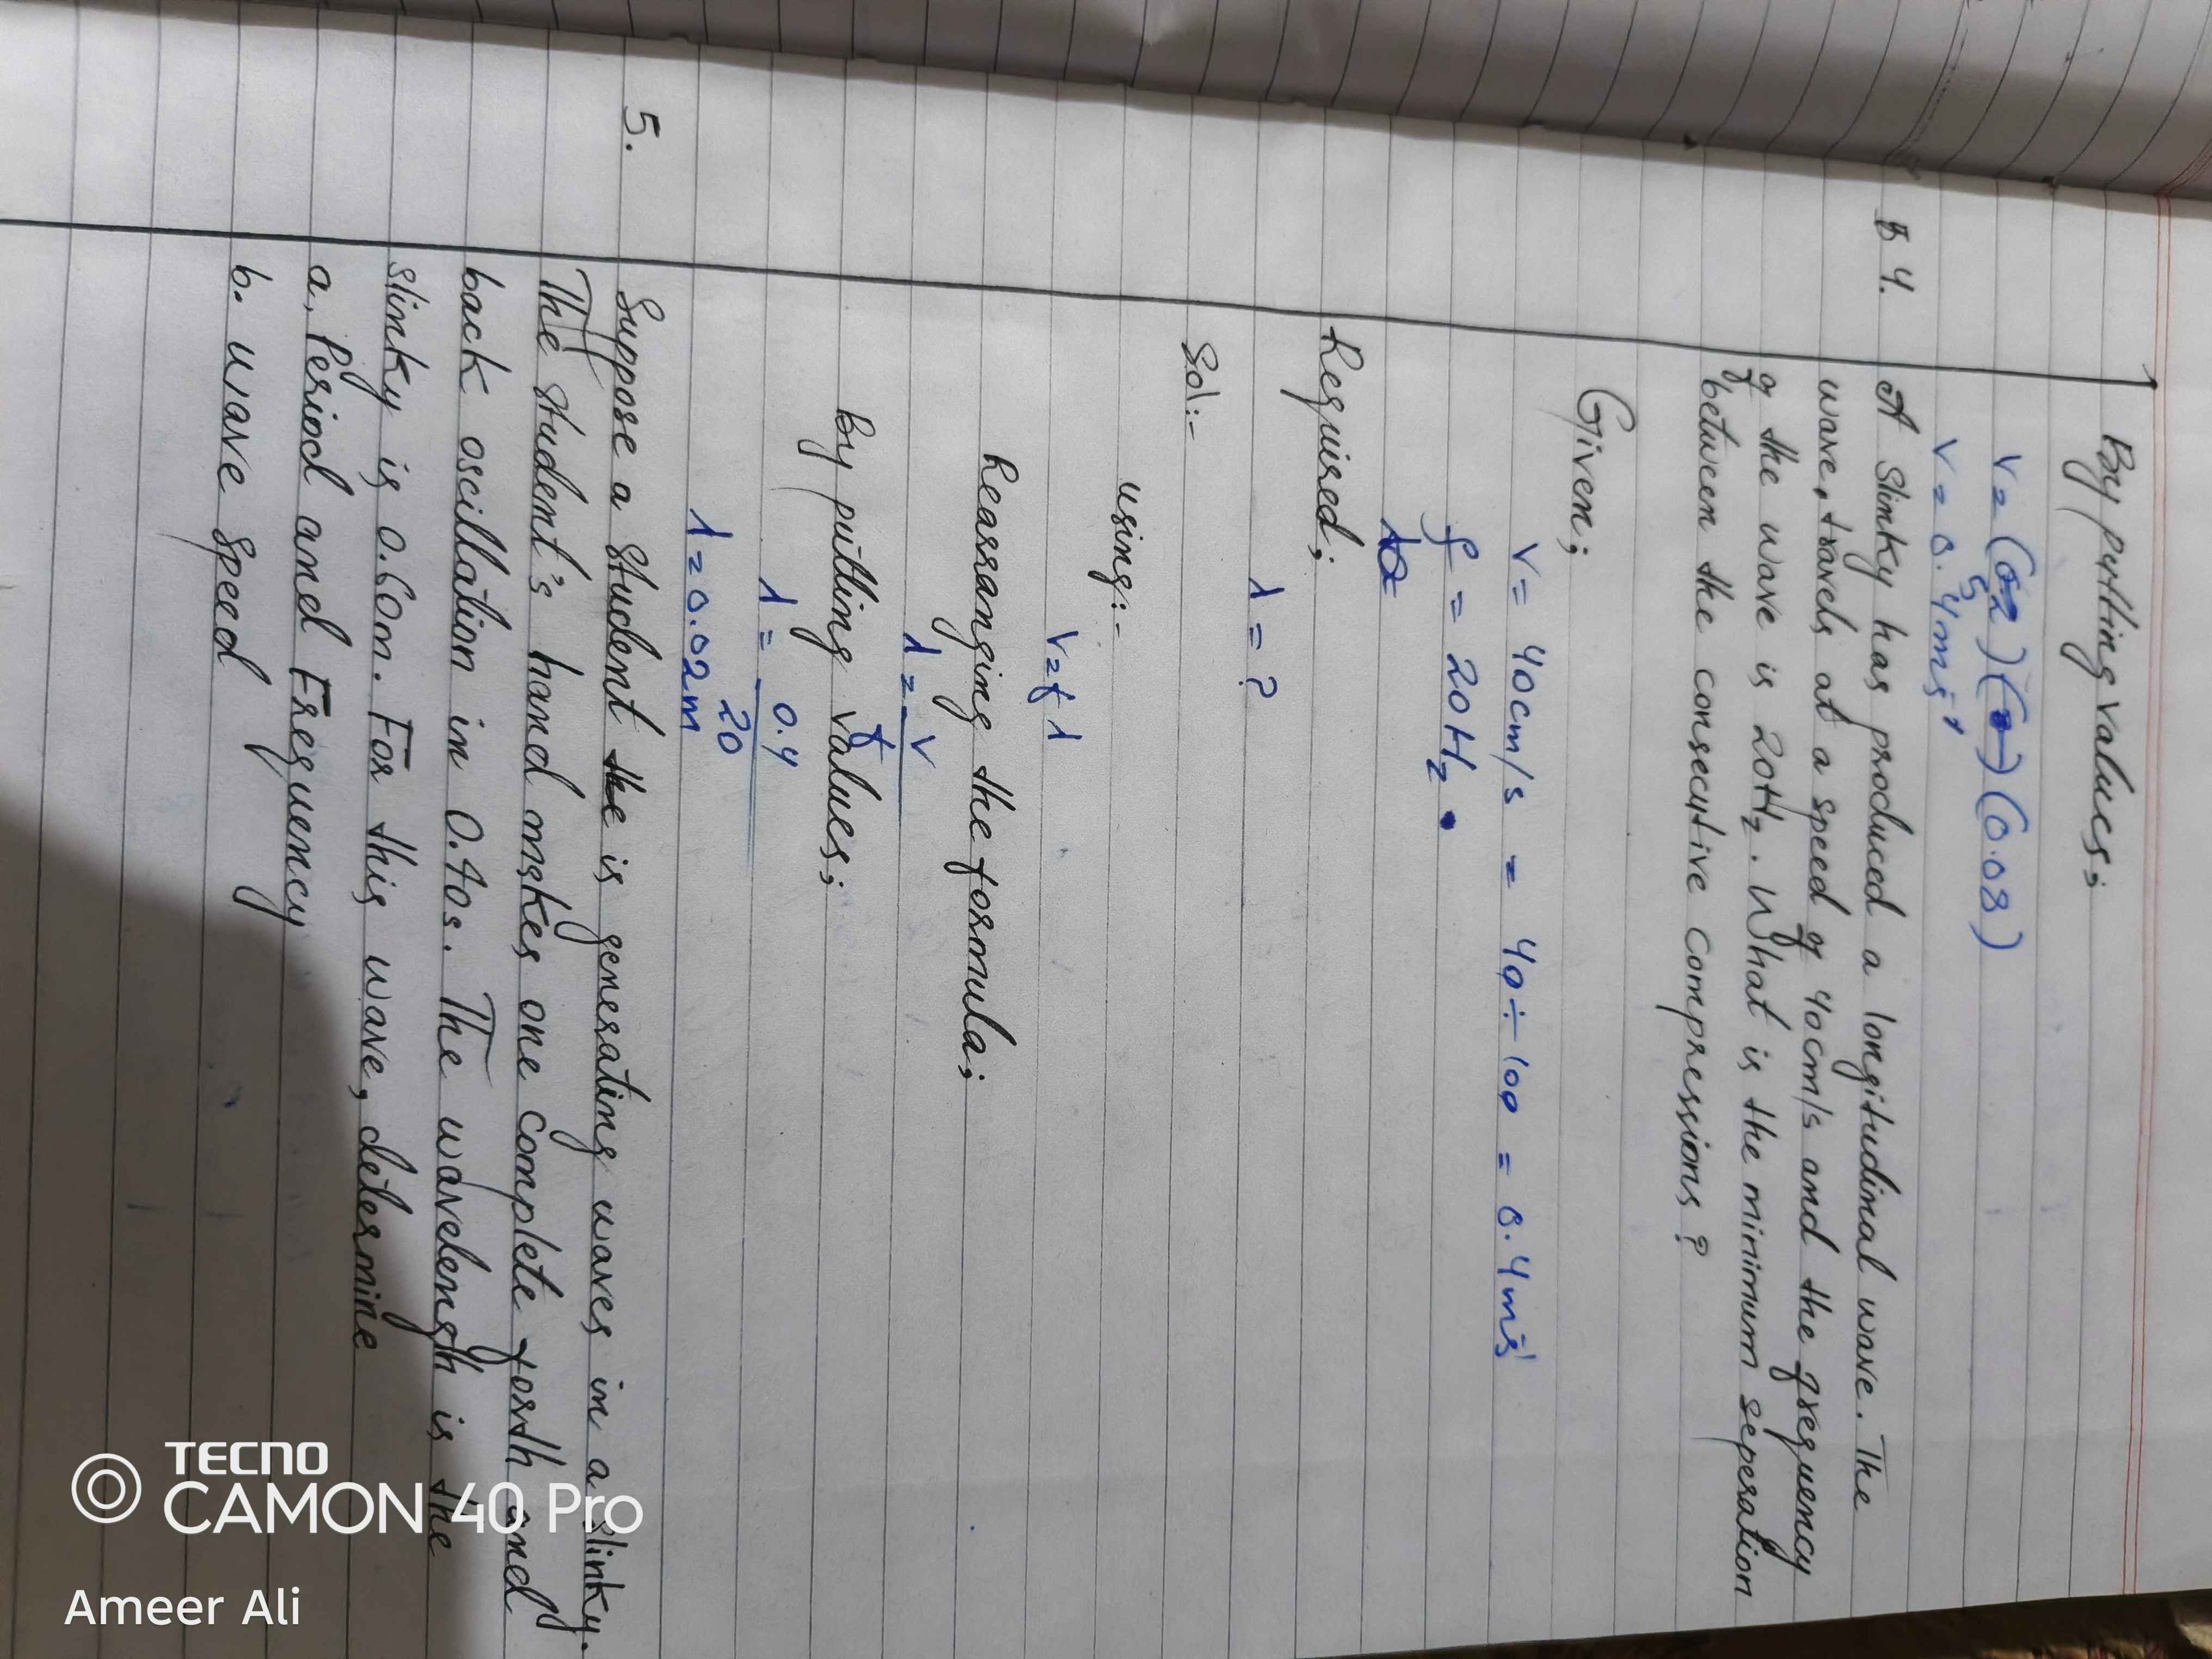 By putting values;
V = (5) (0.08)
V = 0.4ms⁻¹
4. A slinky has produced a longitudinal wave. The
wave, travels at a speed of 40cm/s and the frequency
of the wave is 20Hz. What is the minimum seperation
between the consecutive compressions?
Given;
V = 40cm/s = 40 ÷ 100 = 0.4ms⁻¹
f = 20Hz
Required;
λ = ?
Sol:-
using:-
V = f λ
Rearranging the formula;
λ = V
f
By putting values;
λ = 0.4
20
λ = 0.02m
5. Suppose a student the is generating waves in a slinky.
The student's hand makes one complete forth and
back oscillation in 0.40s. The wavelength is the
slinky is 0.60m. For this wave, determine
a, Period and Frequency
b. wave speed
TECNO
CAMON 40 Pro
Ameer Ali